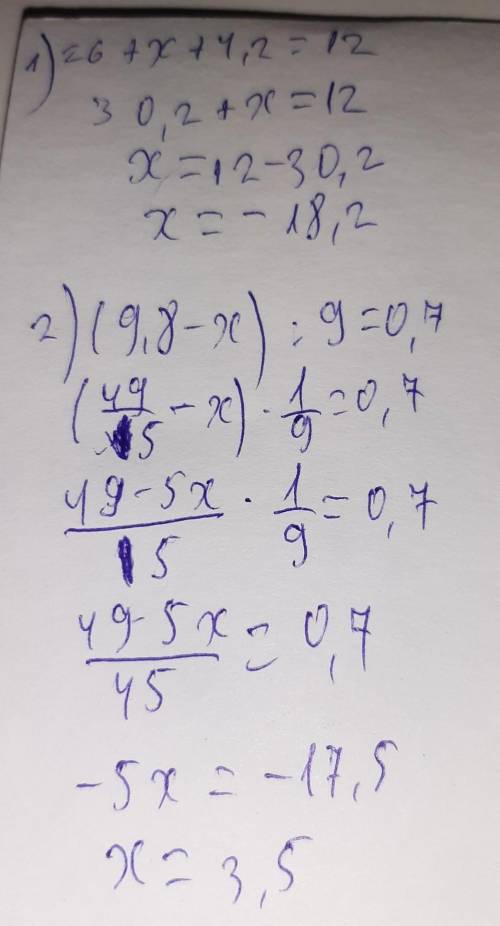 1) 26 + x + 4,2 = 12
30,2 + x = 12
x = 12 - 30,2
x = - 18,2
2) (9,8 - x) : 9 = 0,7
(49/5 - x) · 1/9 = 0,7
49 - 5x/5 · 1/9 = 0,7
49 - 5x/45 = 0,7
-5x = -17,5
x = 3,5